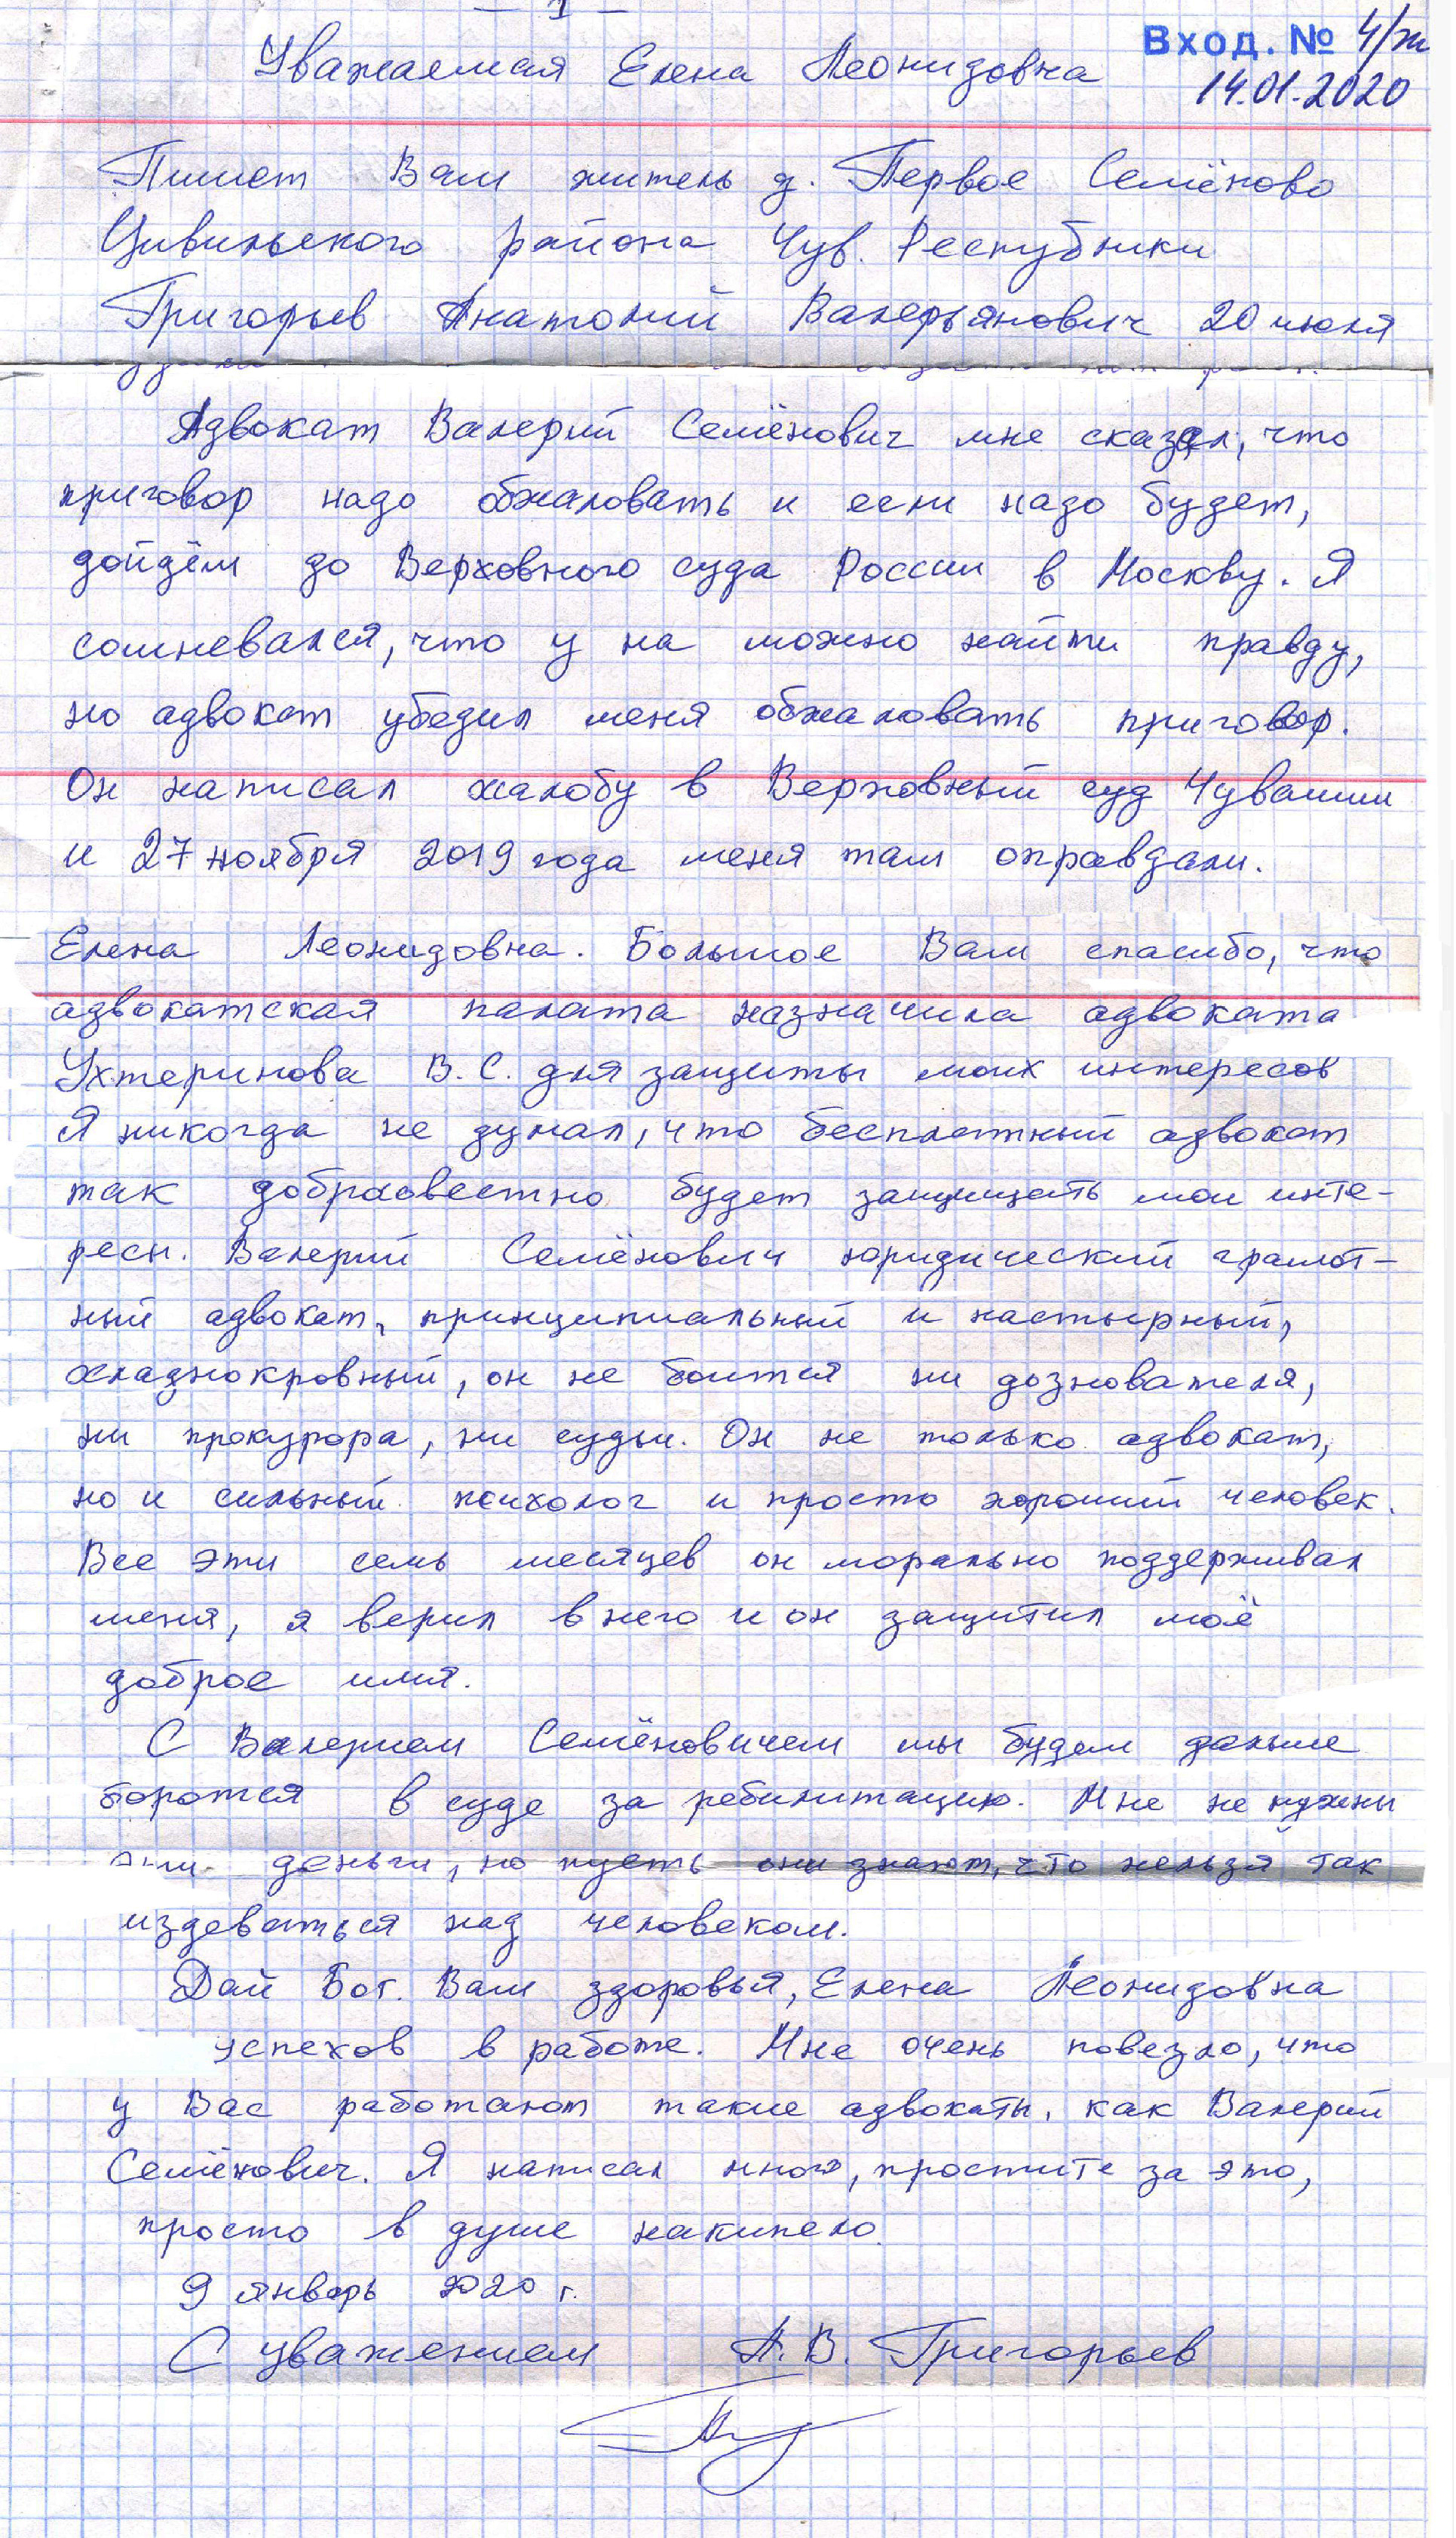 — 1 —
Вход. № 4/ж
14.01.2020
Уважаемая Елена Леонидовна
Пишет Вам житель д. Первое Семёново
Цивильского района Чув. Республики
Григорьев Анатолий Валерьянович 20 июля
Адвокат Валерий Семёнович мне сказал, что
приговор надо обжаловать и если надо будет,
дойдём до Верховного суда России в Москву. Я
сомневался, что у на можно найти правду,
но адвокат убедил меня обжаловать приговор.
Он написал жалобу в Верховный суд Чувашии
и 27 ноября 2019 года меня там оправдали.
Елена Леонидовна. Большое Вам спасибо, что
адвокатская палата назначила адвоката
Ухтеринова В. С. для защиты моих интересов
Я никогда не думал, что бесплатный адвокат
так добрасовестно будет защищать мои инте-
ресы. Валерий Семёнович юридический грамот-
ный адвокат, принципиальный и настырный,
хладнокровный, он не боится ни дознователя,
ни прокурора, ни судьи. Он не только адвокат,
но и сильный психолог и просто хороший человек.
Все эти семь месяцев он морально поддерживал
меня, я верил в него и он защитил моё
доброе имя.
С Валерием Семёновичем мы будем дальше
боротся в суде за ребилитацию. Мне не нужны
деньги, но пусть они знают, что нельзя так
издеваться над человеком.
Дай Бог Вам здоровья, Елена Леонидовна
успехов в работе. Мне очень повезло, что
у Вас работают такие адвокаты, как Валерий
Семёнович. Я написал много, простите за это,
просто в душе накипело.
9 январь 2020 г.
С уважением А. В. Григорьев